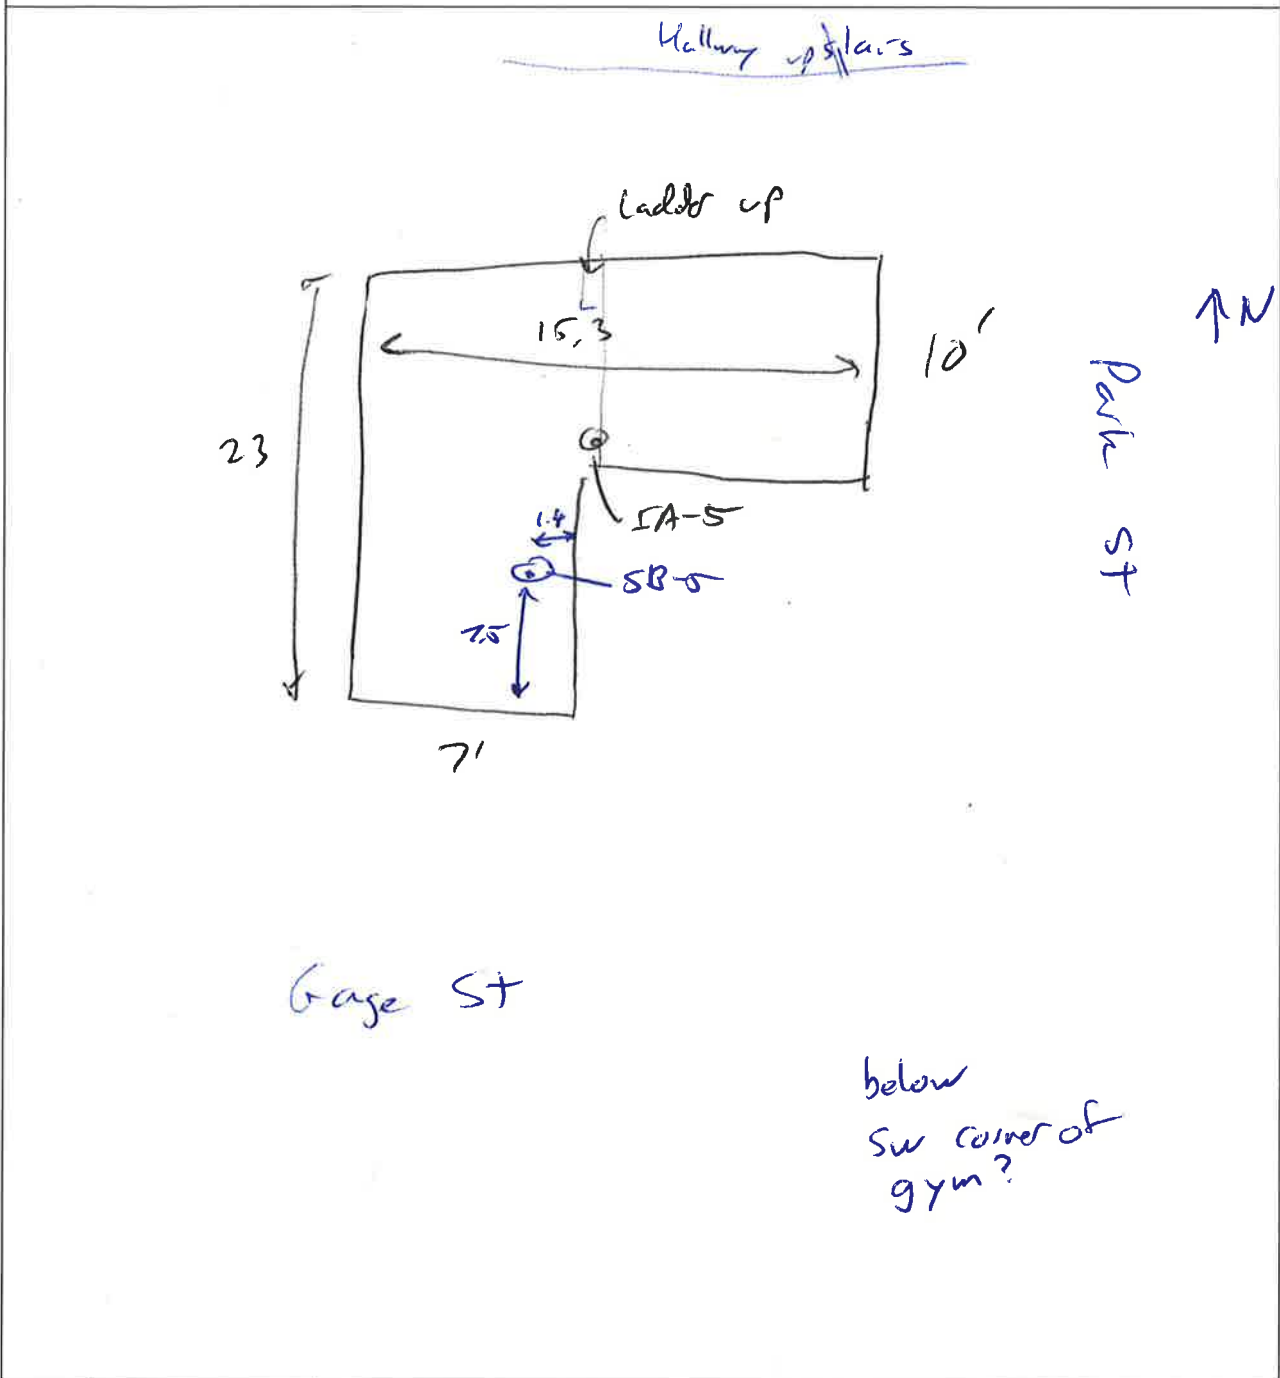 Hallway upstairs
Ladder up
↑N
15.3
10'
Park St
23
IA-5
1.4
SB-5
7.5
7'
Gage St
below
SW corner of
gym?